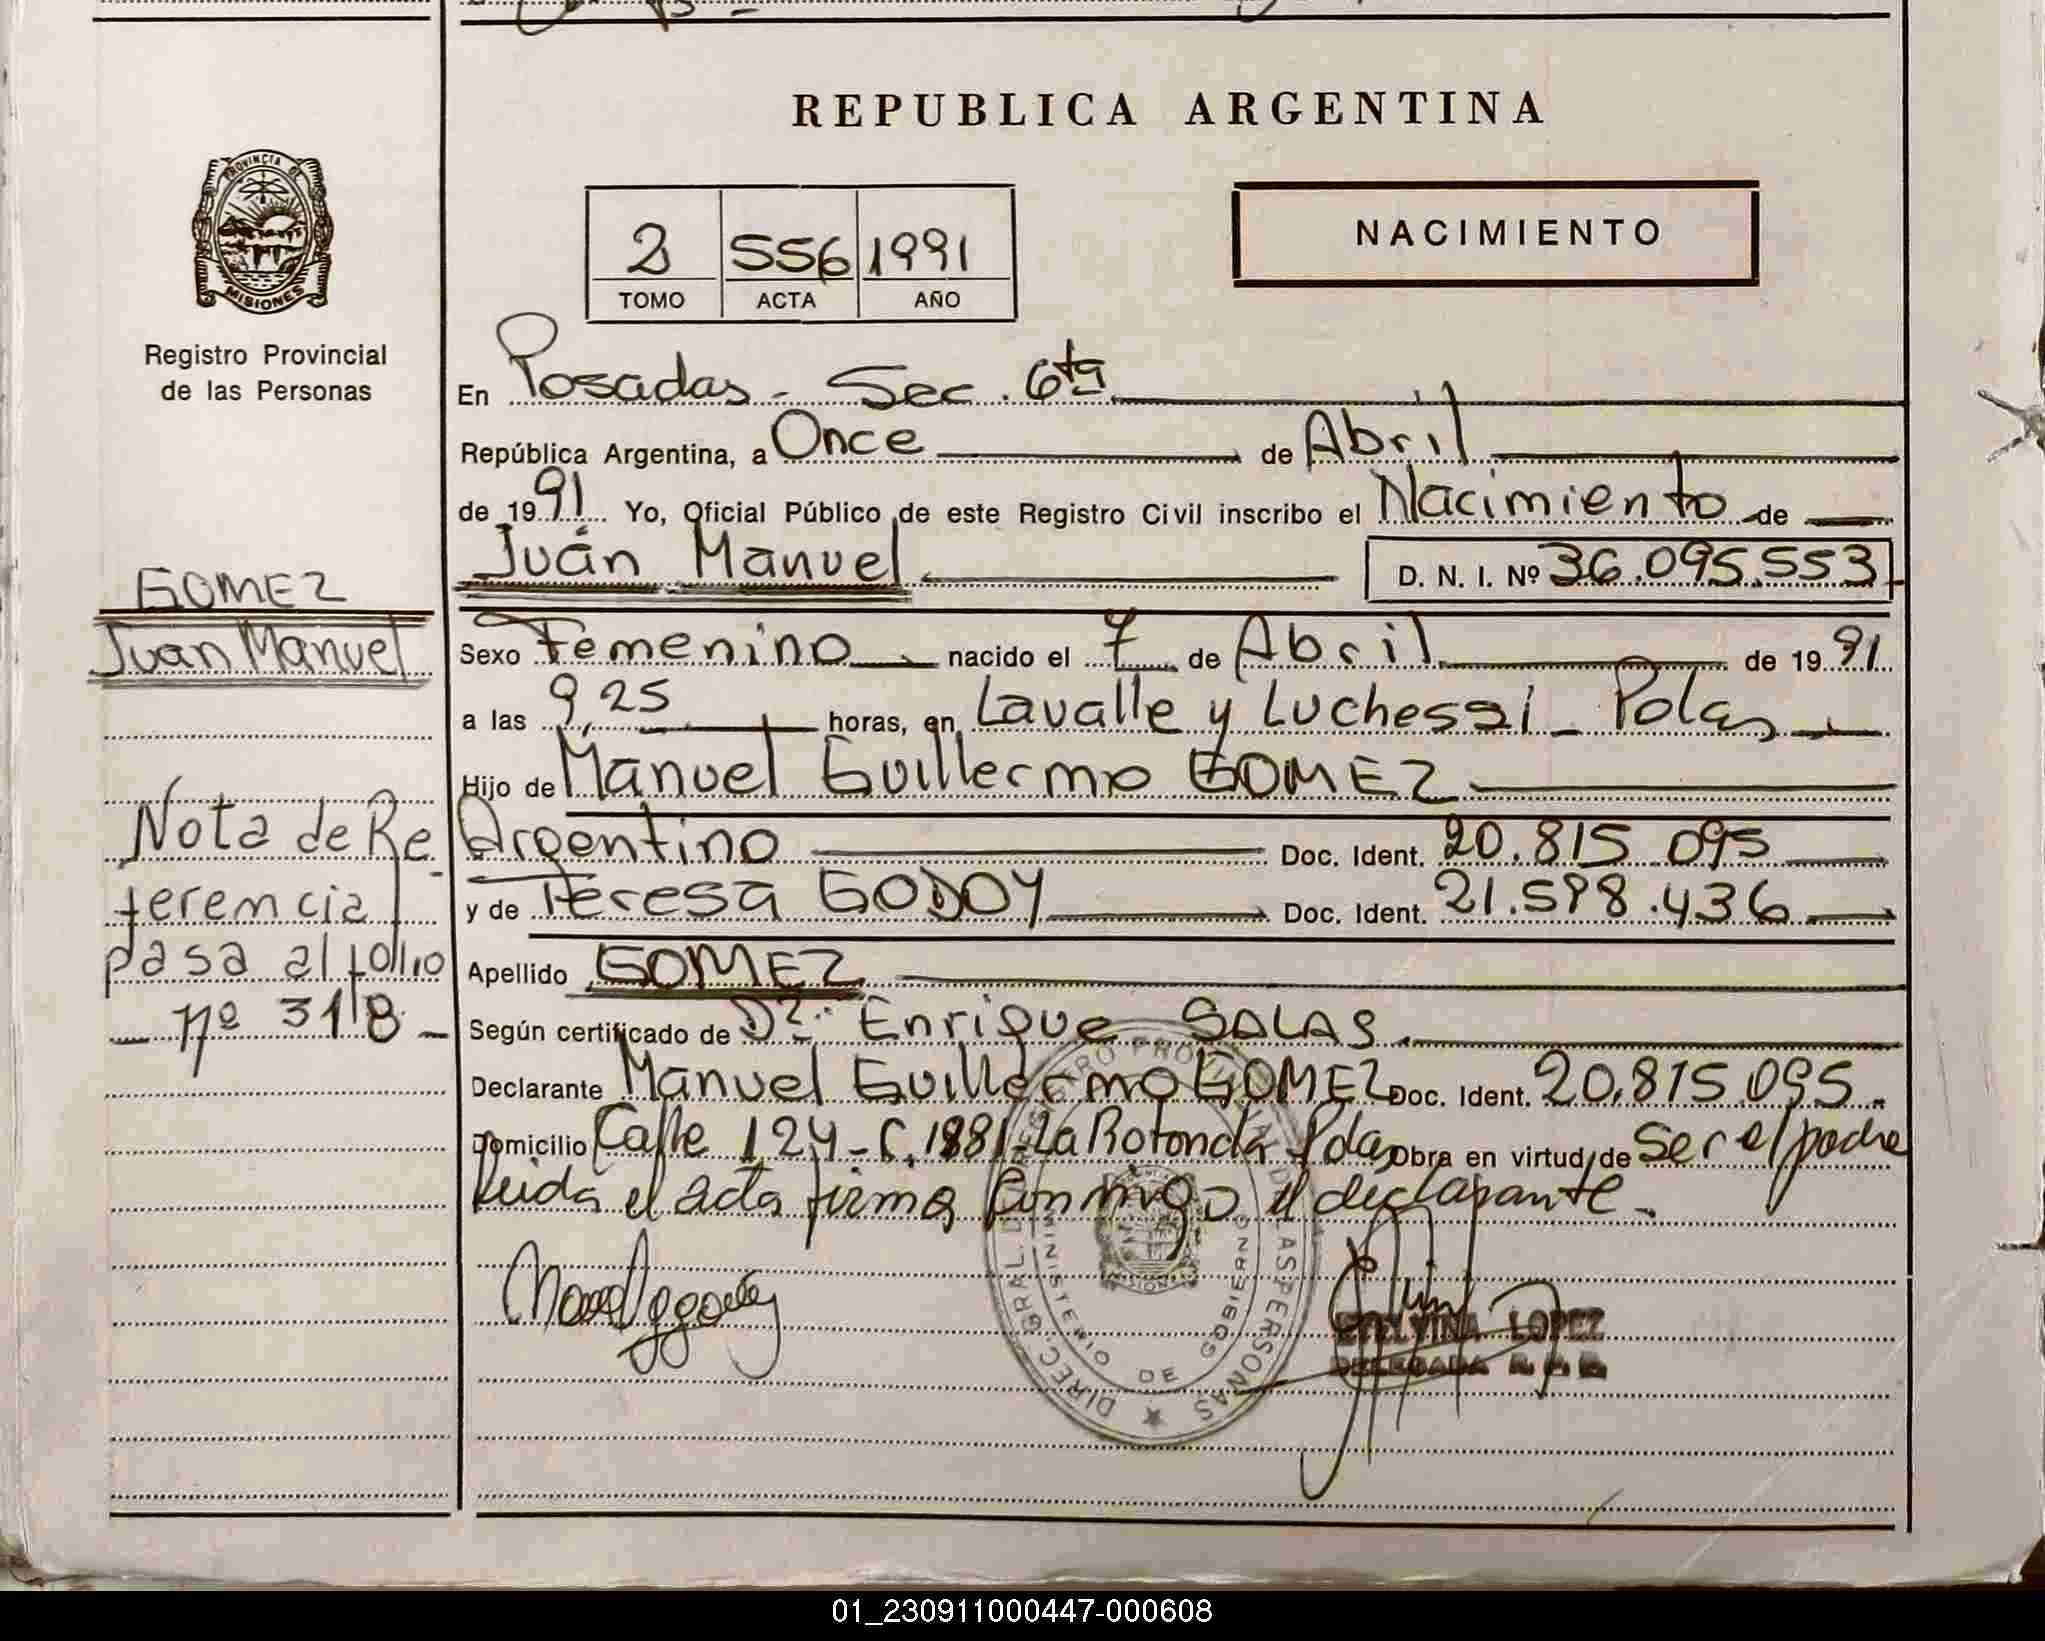 REPUBLICA ARGENTINA
PROVINCIA DE
MISIONES
Registro Provincial
de las Personas
NACIMIENTO
2 556 1991
TOMO ACTA AÑO
En Posadas - Sec. 6ta
República Argentina, a Once de Abril
de 1991 Yo, Oficial Público de este Registro Civil inscribo el Nacimiento de
Juán Manuel D. N. I. Nº 36.095.553
GOMEZ
Juan Manuel
Sexo Femenino nacido el 7 de Abril de 1991
a las 9,25 horas, en Lavalle y Luchessi - Pdas
Hijo de Manuel Guillermo GOMEZ
Argentino Doc. Ident. 20.815.095
y de Teresa GODOY Doc. Ident. 21.598.436
Apellido GOMEZ
Según certificado de Dr. Enrique SALAS
Declarante Manuel Guillermo GOMEZ Doc. Ident. 20.815.095.
Domicilio Calle 124 - C. 1881 - La Rotonda Pdas Obra en virtud de Ser el padre
Leida el acta firma conmigo el declarante.
Nota de Re
ferencia
pasa al folio
- nº 318 -
DIRECC. GRAL. DEL REGISTRO PROVINCIAL DE LAS PERSONAS
MINISTERIO DE GOBIERNO
MISIONES
ETELVINA LOPEZ
DELEGADA
01_230911000447-000608